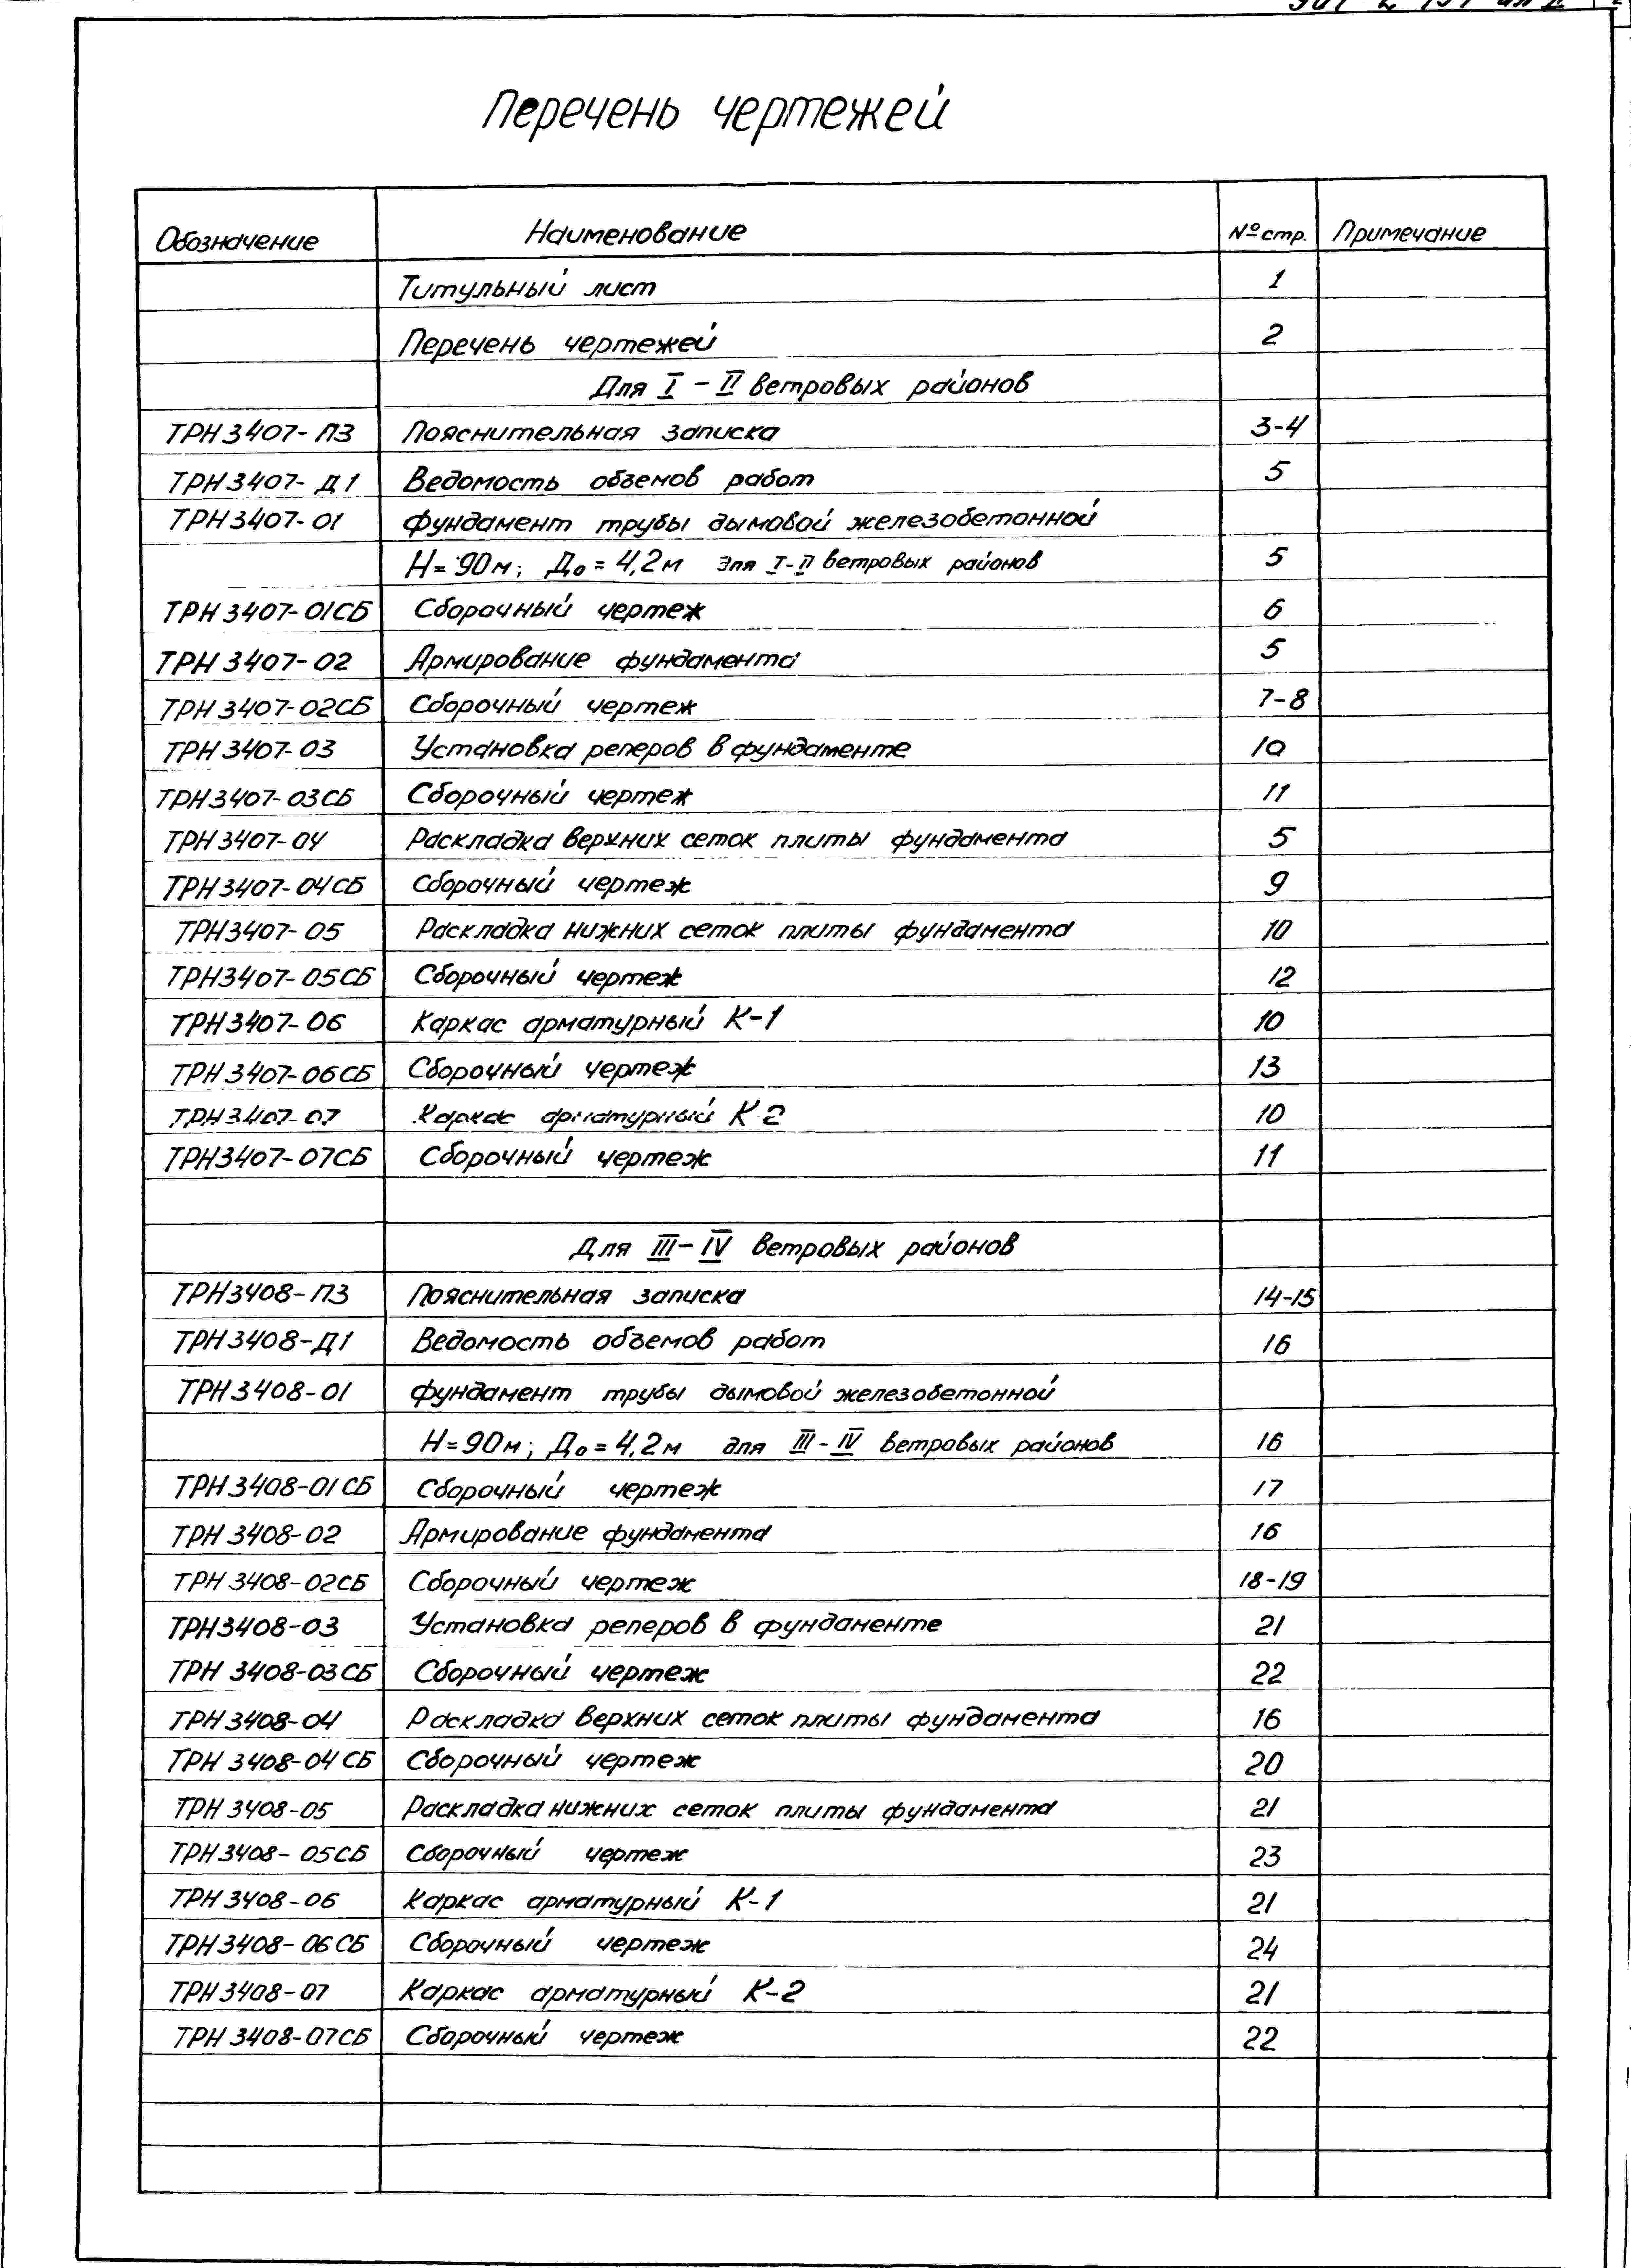 Перечень чертежей
Обозначение Наименование № стр. Примечание
Титульный лист 1
Перечень чертежей 2
Для I - II ветровых районов
ТРН 3407-ПЗ Пояснительная записка 3-4
ТРН 3407-Д1 Ведомость объемов работ 5
ТРН 3407-01 Фундамент трубы дымовой железобетонной
Н=90м; До=4,2м для I-II ветровых районов 5
ТРН 3407-01СБ Сборочный чертеж 6
ТРН 3407-02 Армирование фундамента 5
ТРН 3407-02СБ Сборочный чертеж 7-8
ТРН 3407-03 Установка реперов в фундаменте 10
ТРН 3407-03СБ Сборочный чертеж 11
ТРН 3407-04 Раскладка верхних сеток плиты фундамента 5
ТРН 3407-04СБ Сборочный чертеж 9
ТРН 3407-05 Раскладка нижних сеток плиты фундамента 10
ТРН 3407-05СБ Сборочный чертеж 12
ТРН 3407-06 Каркас арматурный К-1 10
ТРН 3407-06СБ Сборочный чертеж 13
ТРН 3407-07 Каркас арматурный К-2 10
ТРН 3407-07СБ Сборочный чертеж 11
Для III-IV ветровых районов
ТРН 3408-ПЗ Пояснительная записка 14-15
ТРН 3408-Д1 Ведомость объемов работ 16
ТРН 3408-01 Фундамент трубы дымовой железобетонной
Н=90м; До=4,2м для III-IV ветровых районов 16
ТРН 3408-01СБ Сборочный чертеж 17
ТРН 3408-02 Армирование фундамента 16
ТРН 3408-02СБ Сборочный чертеж 18-19
ТРН 3408-03 Установка реперов в фундаменте 21
ТРН 3408-03СБ Сборочный чертеж 22
ТРН 3408-04 Раскладка верхних сеток плиты фундамента 16
ТРН 3408-04СБ Сборочный чертеж 20
ТРН 3408-05 Раскладка нижних сеток плиты фундамента 21
ТРН 3408-05СБ Сборочный чертеж 23
ТРН 3408-06 Каркас арматурный К-1 21
ТРН 3408-06СБ Сборочный чертеж 24
ТРН 3408-07 Каркас арматурный К-2 21
ТРН 3408-07СБ Сборочный чертеж 22